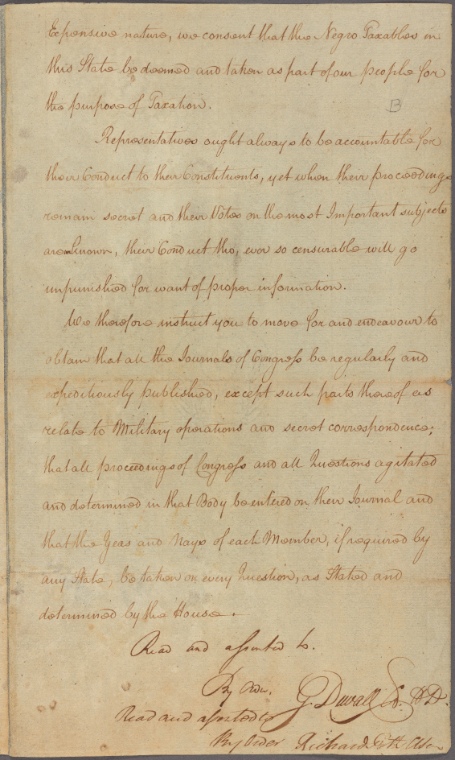 Expensive nature, we consent that the Negro Taxables in
this State be deemed and taken as part of our people for
the purpose of Taxation.
B
Representatives ought always to be accountable for
their Conduct to their Constituents, yet when their proceedings
remain secret and their Votes on the most Important subjects
are unknown, their Conduct tho, ever so censurable will go
unpunished for want of proper information.
We therefore instruct you to move for and endeavour to
obtain that all the Journals of Congress be regularly and
expeditiously published, except such parts thereof as
relate to Military operations and secret correspondence;
that all proceedings of Congress and all Questions agitated
and determined in that Body be entered on their Journal and
that the Yeas and Nays of each Member, if required by
any State, be taken on every Question, as Stated and
determined by the House.
Read and assented to.
By Order. G. Duvall Ck. HD.
Read and assented to
By Order Richard